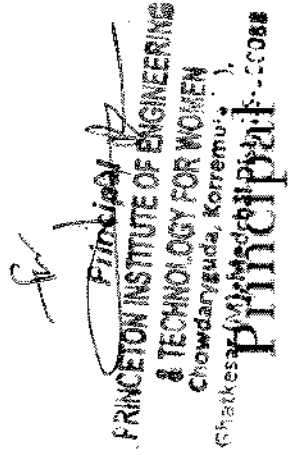 Principal
PRINCETON INSTITUTE OF ENGINEERING
& TECHNOLOGY FOR WOMEN
Chowdaryguda, Korremula
Ghatkesar (M), Medchal Dist
Principal